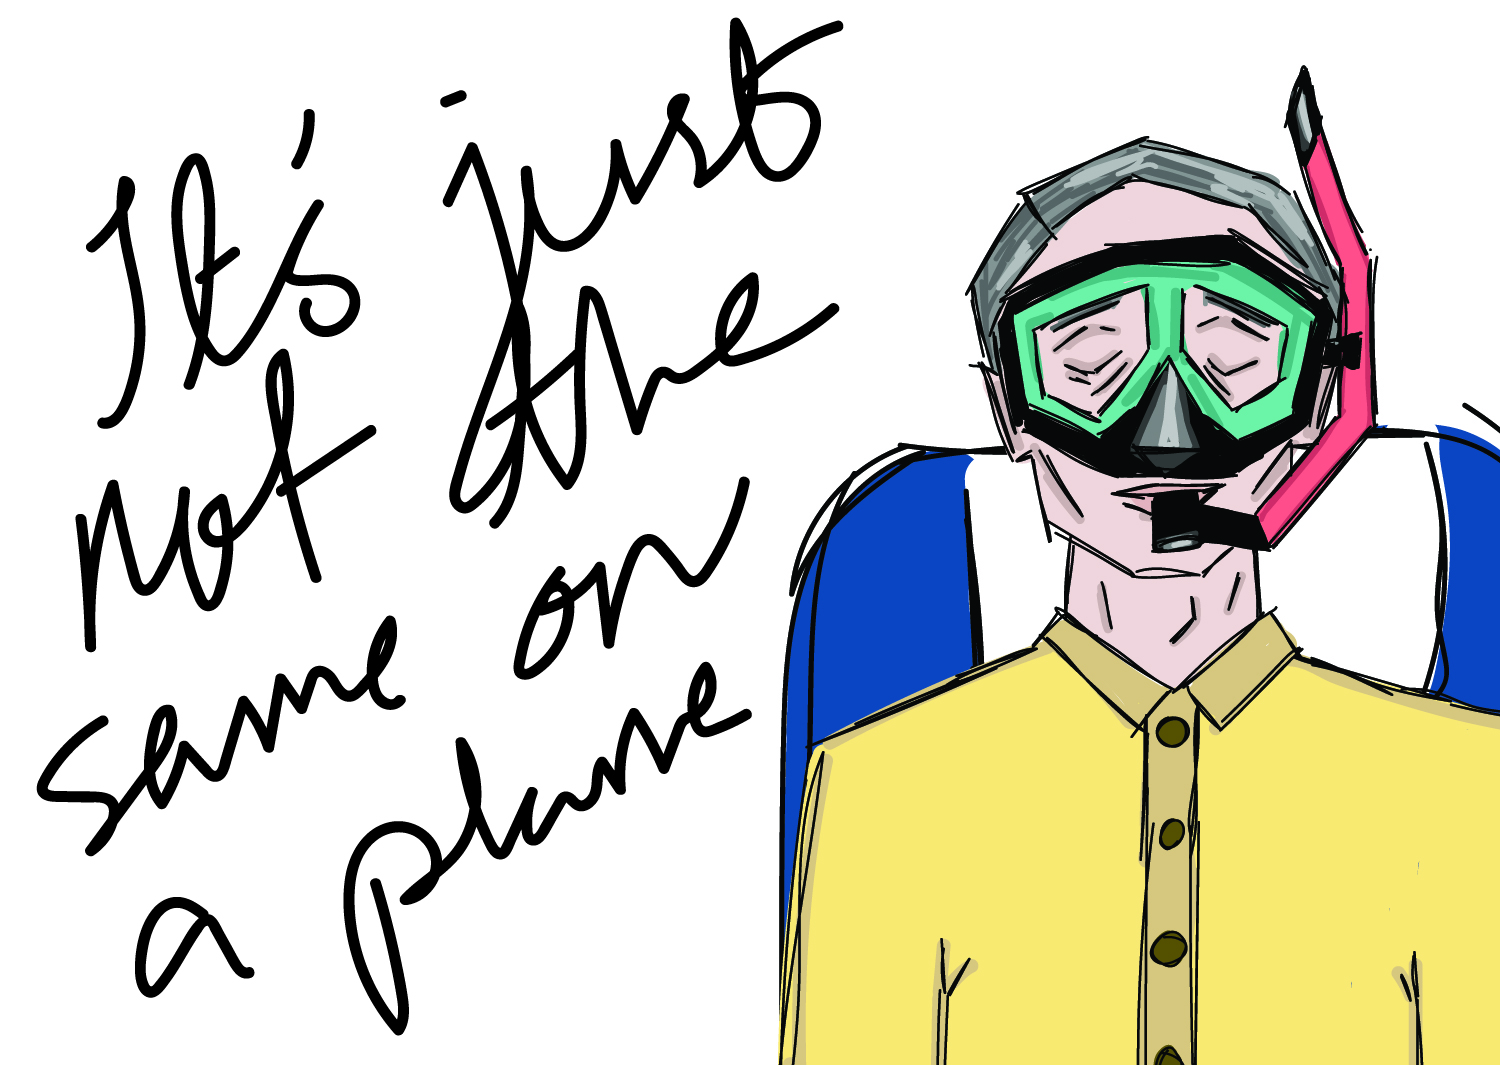 It's just
not the
same on
a plane